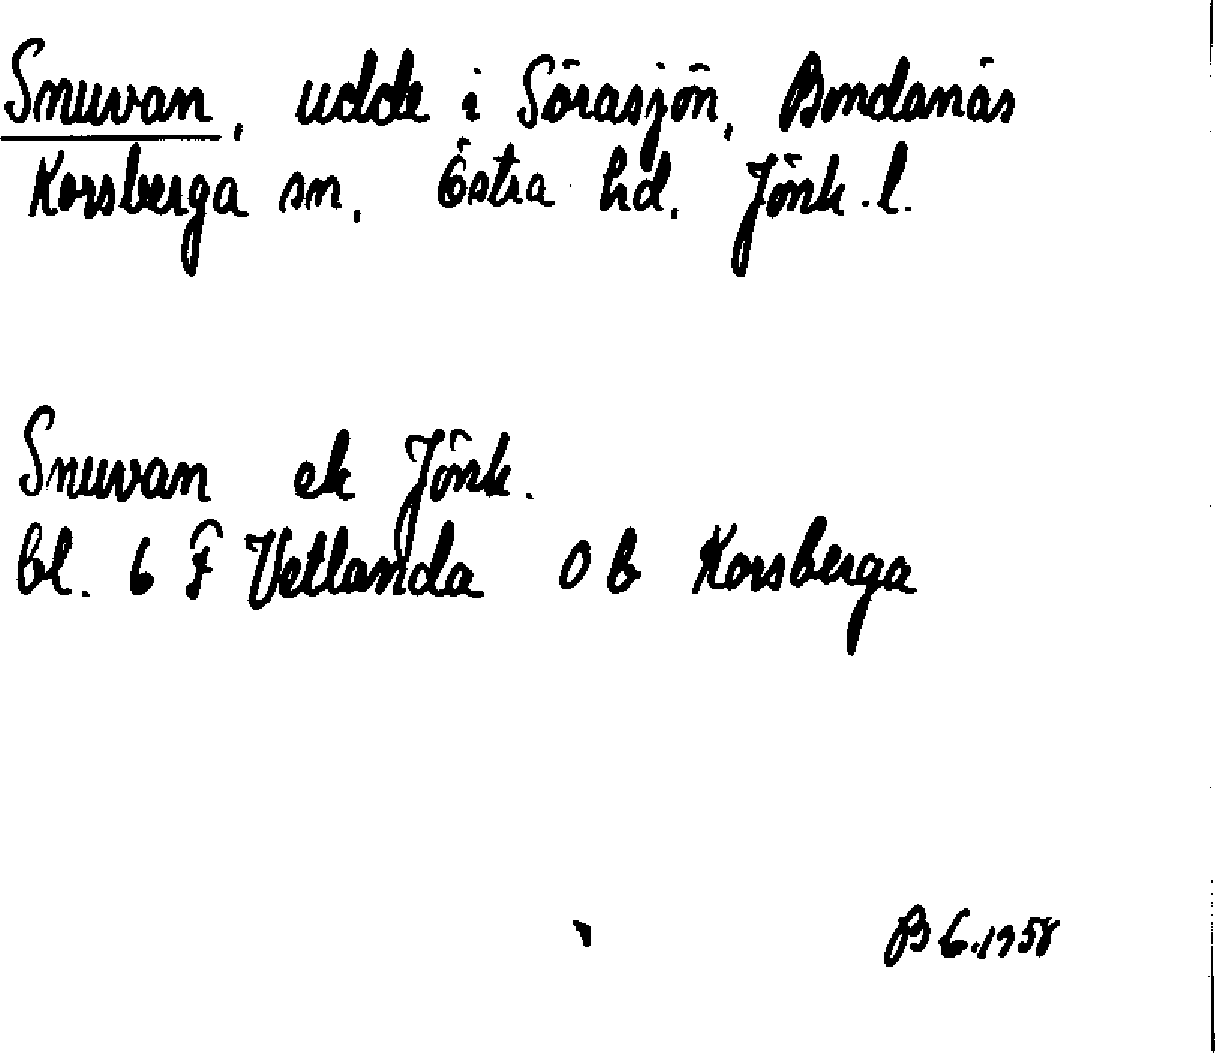 Snuvan, udde i Sörasjön, Bondanäs
Korsberga sn, Östra hd, Jönk.l.
Snuvan ek Jönk.
bl. 6 F Vetlanda 0 b Korsberga
1958